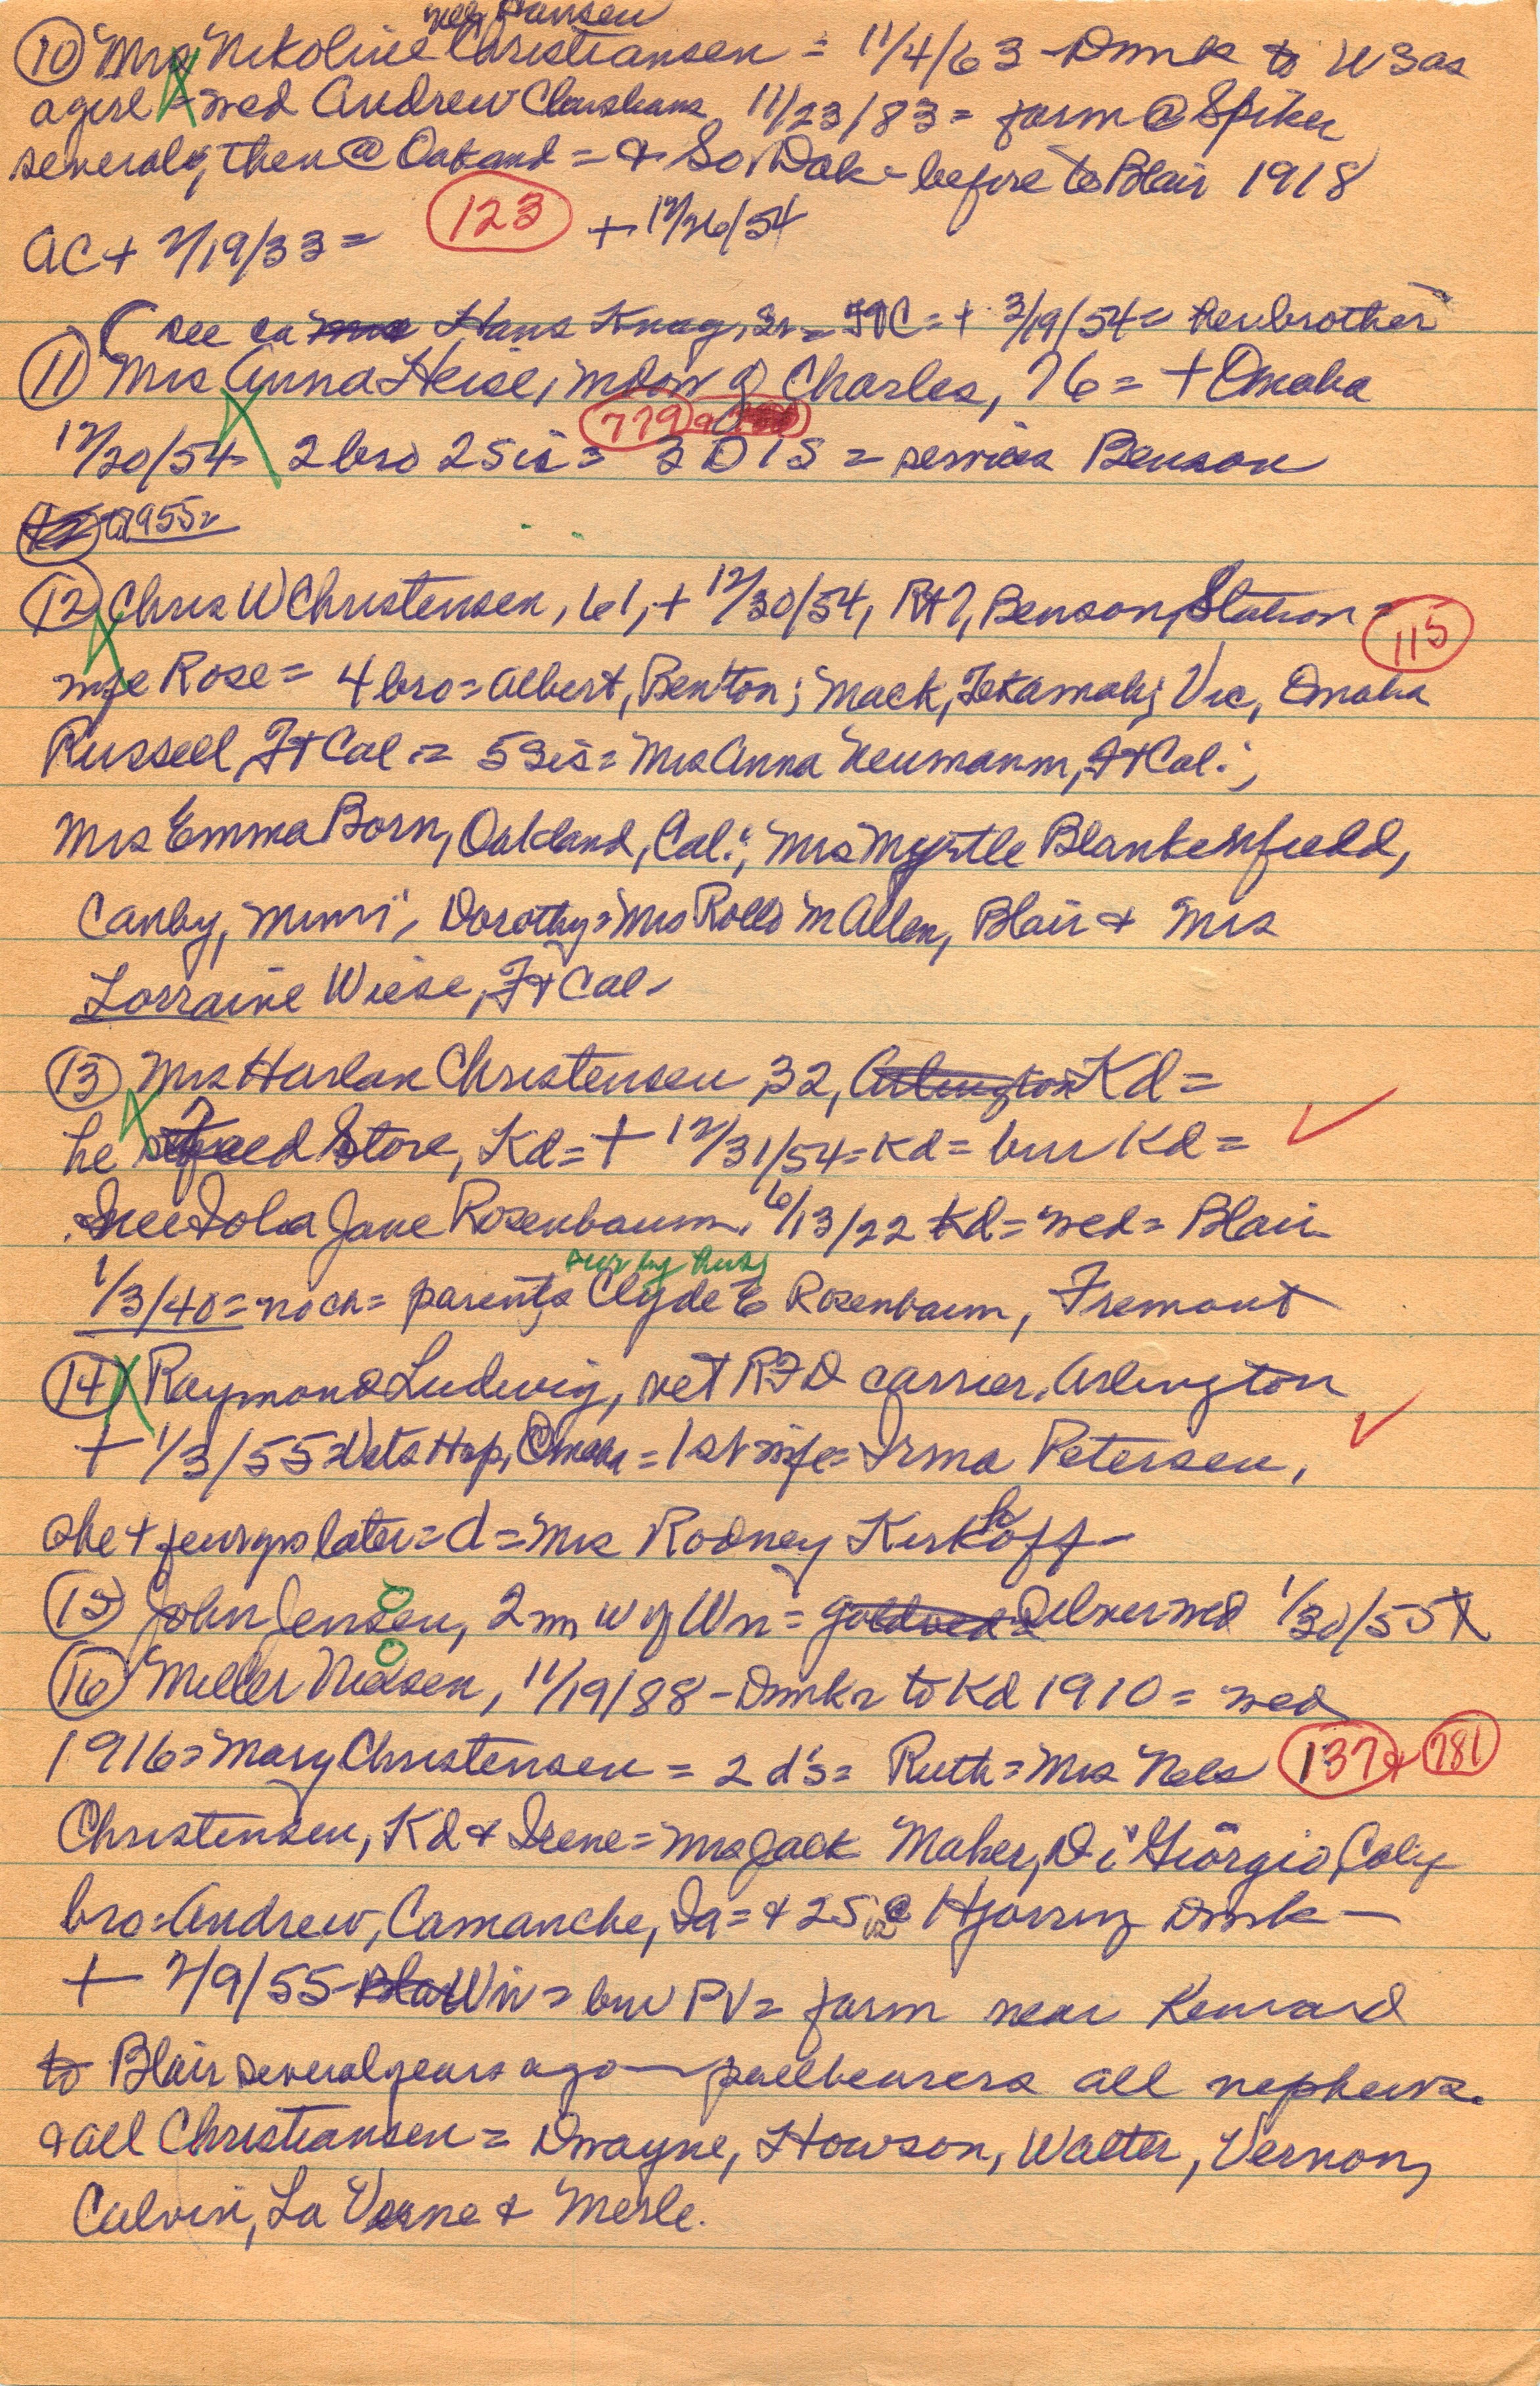 nee Hansen
(10) Mrs Nikoline Christiansen = 11/4/63 - Dmrk to US as
a girl = wed Andrew Christians 11/23/83 = farm @ Spiker
several y, then @ Oakland = & So. Dak - before to Blair 1918
AC + 2/19/33 = 123 + 12/26/54
(see ca Hans Knag, Sr = + 3/19/54 = her brother
(11) Mrs Anna Heise, widow of Charles, 76 = + Omaha
779
12/30/54 = 2 bro 2 Sis = 3 D 1 S = services Benson
1955 =
(12) Chris W Christensen, 61, + 12/30/54, Rt 2, Benson Station = 115
wife Rose = 4 bro = Albert, Benton; Mack, Tekamah; Vic, Omaha
Russell, Ft Cal = 5 Sis = Mrs Anna Neumann, Ft Cal.;
Mrs Emma Born, Oakland, Cal.; Mrs Myrtle Blankenfield,
Canby, Minn; Dorothy = Mrs Rollo McAllen, Blair & Mrs
Lorraine Wiese, Ft Cal -
(13) Mrs Harlan Christensen, 32, Arlington Kd =
he feed Store, Kd = + 12/31/54 = Kd = bur Kd =
nee Iola Jane Rosenbaum, 6/13/22 Kd = wed = Blair
sur by husb
1/3/40 = no ch = parents Clyde E Rosenbaum, Fremont
(14) Raymond Ludwig, ret RFD carrier, Arlington
+ 1/3/55 = Vets Hosp, Omaha = 1st wife = Irma Petersen,
she + few yrs later = d = Mrs Rodney Kirkhoff -
(15) John Jensen, 2 m w of Wn = gold wed Silver wed 1/30/55 X
(16) Miller Nielsen, 11/19/88 - Dmk = to Kd 1910 = wed
1916 = Mary Christensen = 2 d's = Ruth = Mrs Nels 137 & 781
Christensen, Kd & Irene = Mrs Jack Maher, Di Giorgio, Calif
bro = Andrew, Camanche, Ia = & 2 Sis @ Hjorring Dmk -
+ 2/9/55 - Bla Wn = bur PV = farm near Kennard
to Blair several years ago - pallbearers all nephews.
& all Christiansen = Dwayne, Howson, Walter, Vernon,
Calvin, La Verne & Merle.